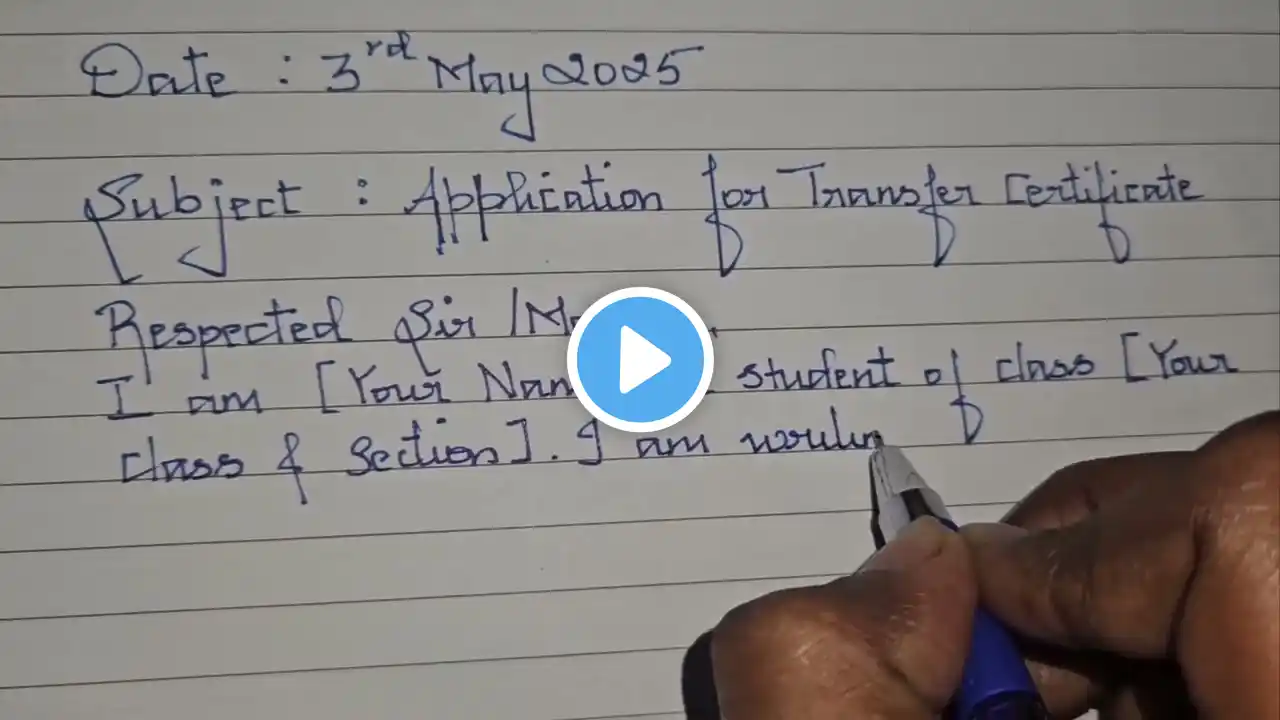 Date : 3rd May 2025
Subject : Application for Transfer Certificate
Respected Sir /
I am [Your student of class [Your
class & Section]. I am